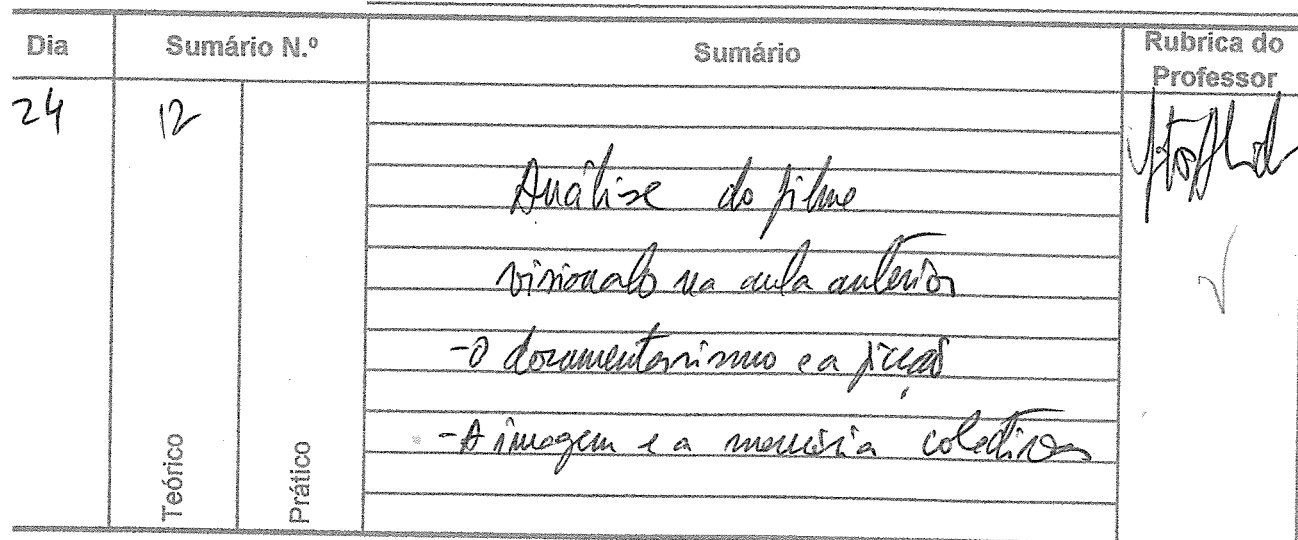 Dia Sumário N.º Sumário Rubrica do Professor
24 12
Análise do filme
visionado na aula anterior
-O documentarismo e a ficção
-A imagem e a memória colectiva
Teórico Prático